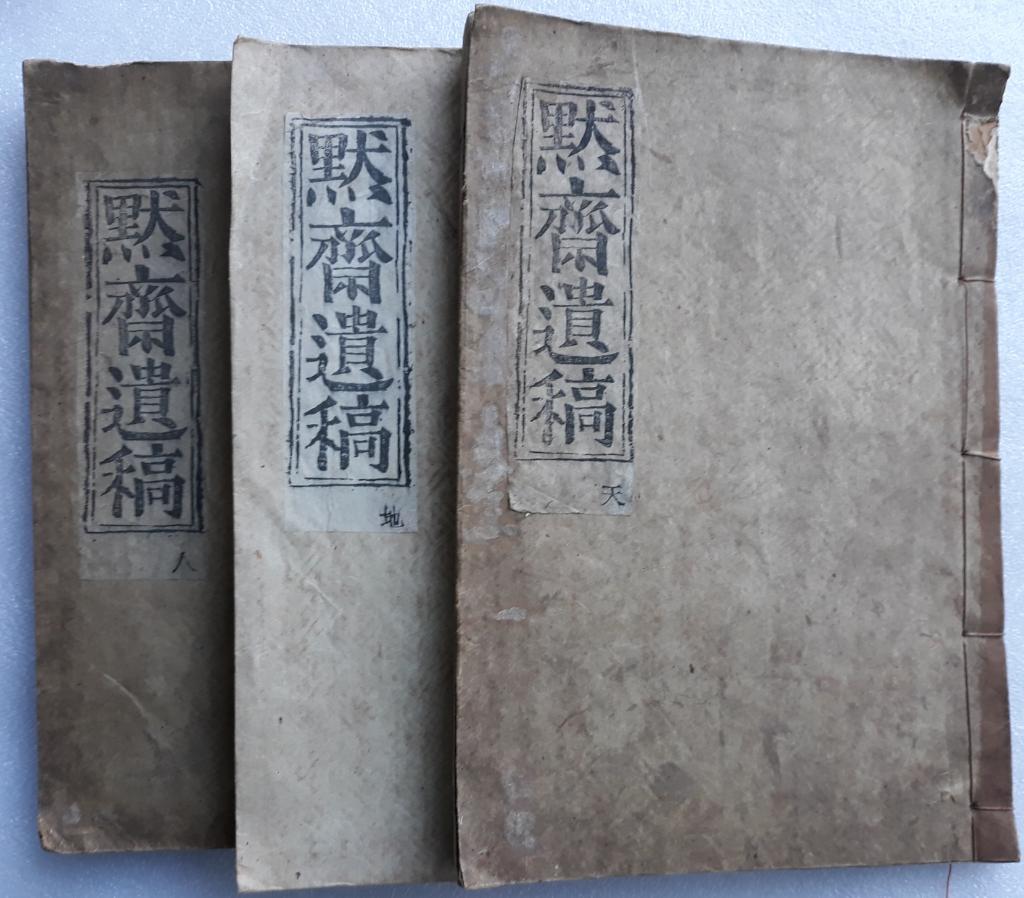 默齋遺稿
天
默齋遺稿
地
默齋遺稿
人